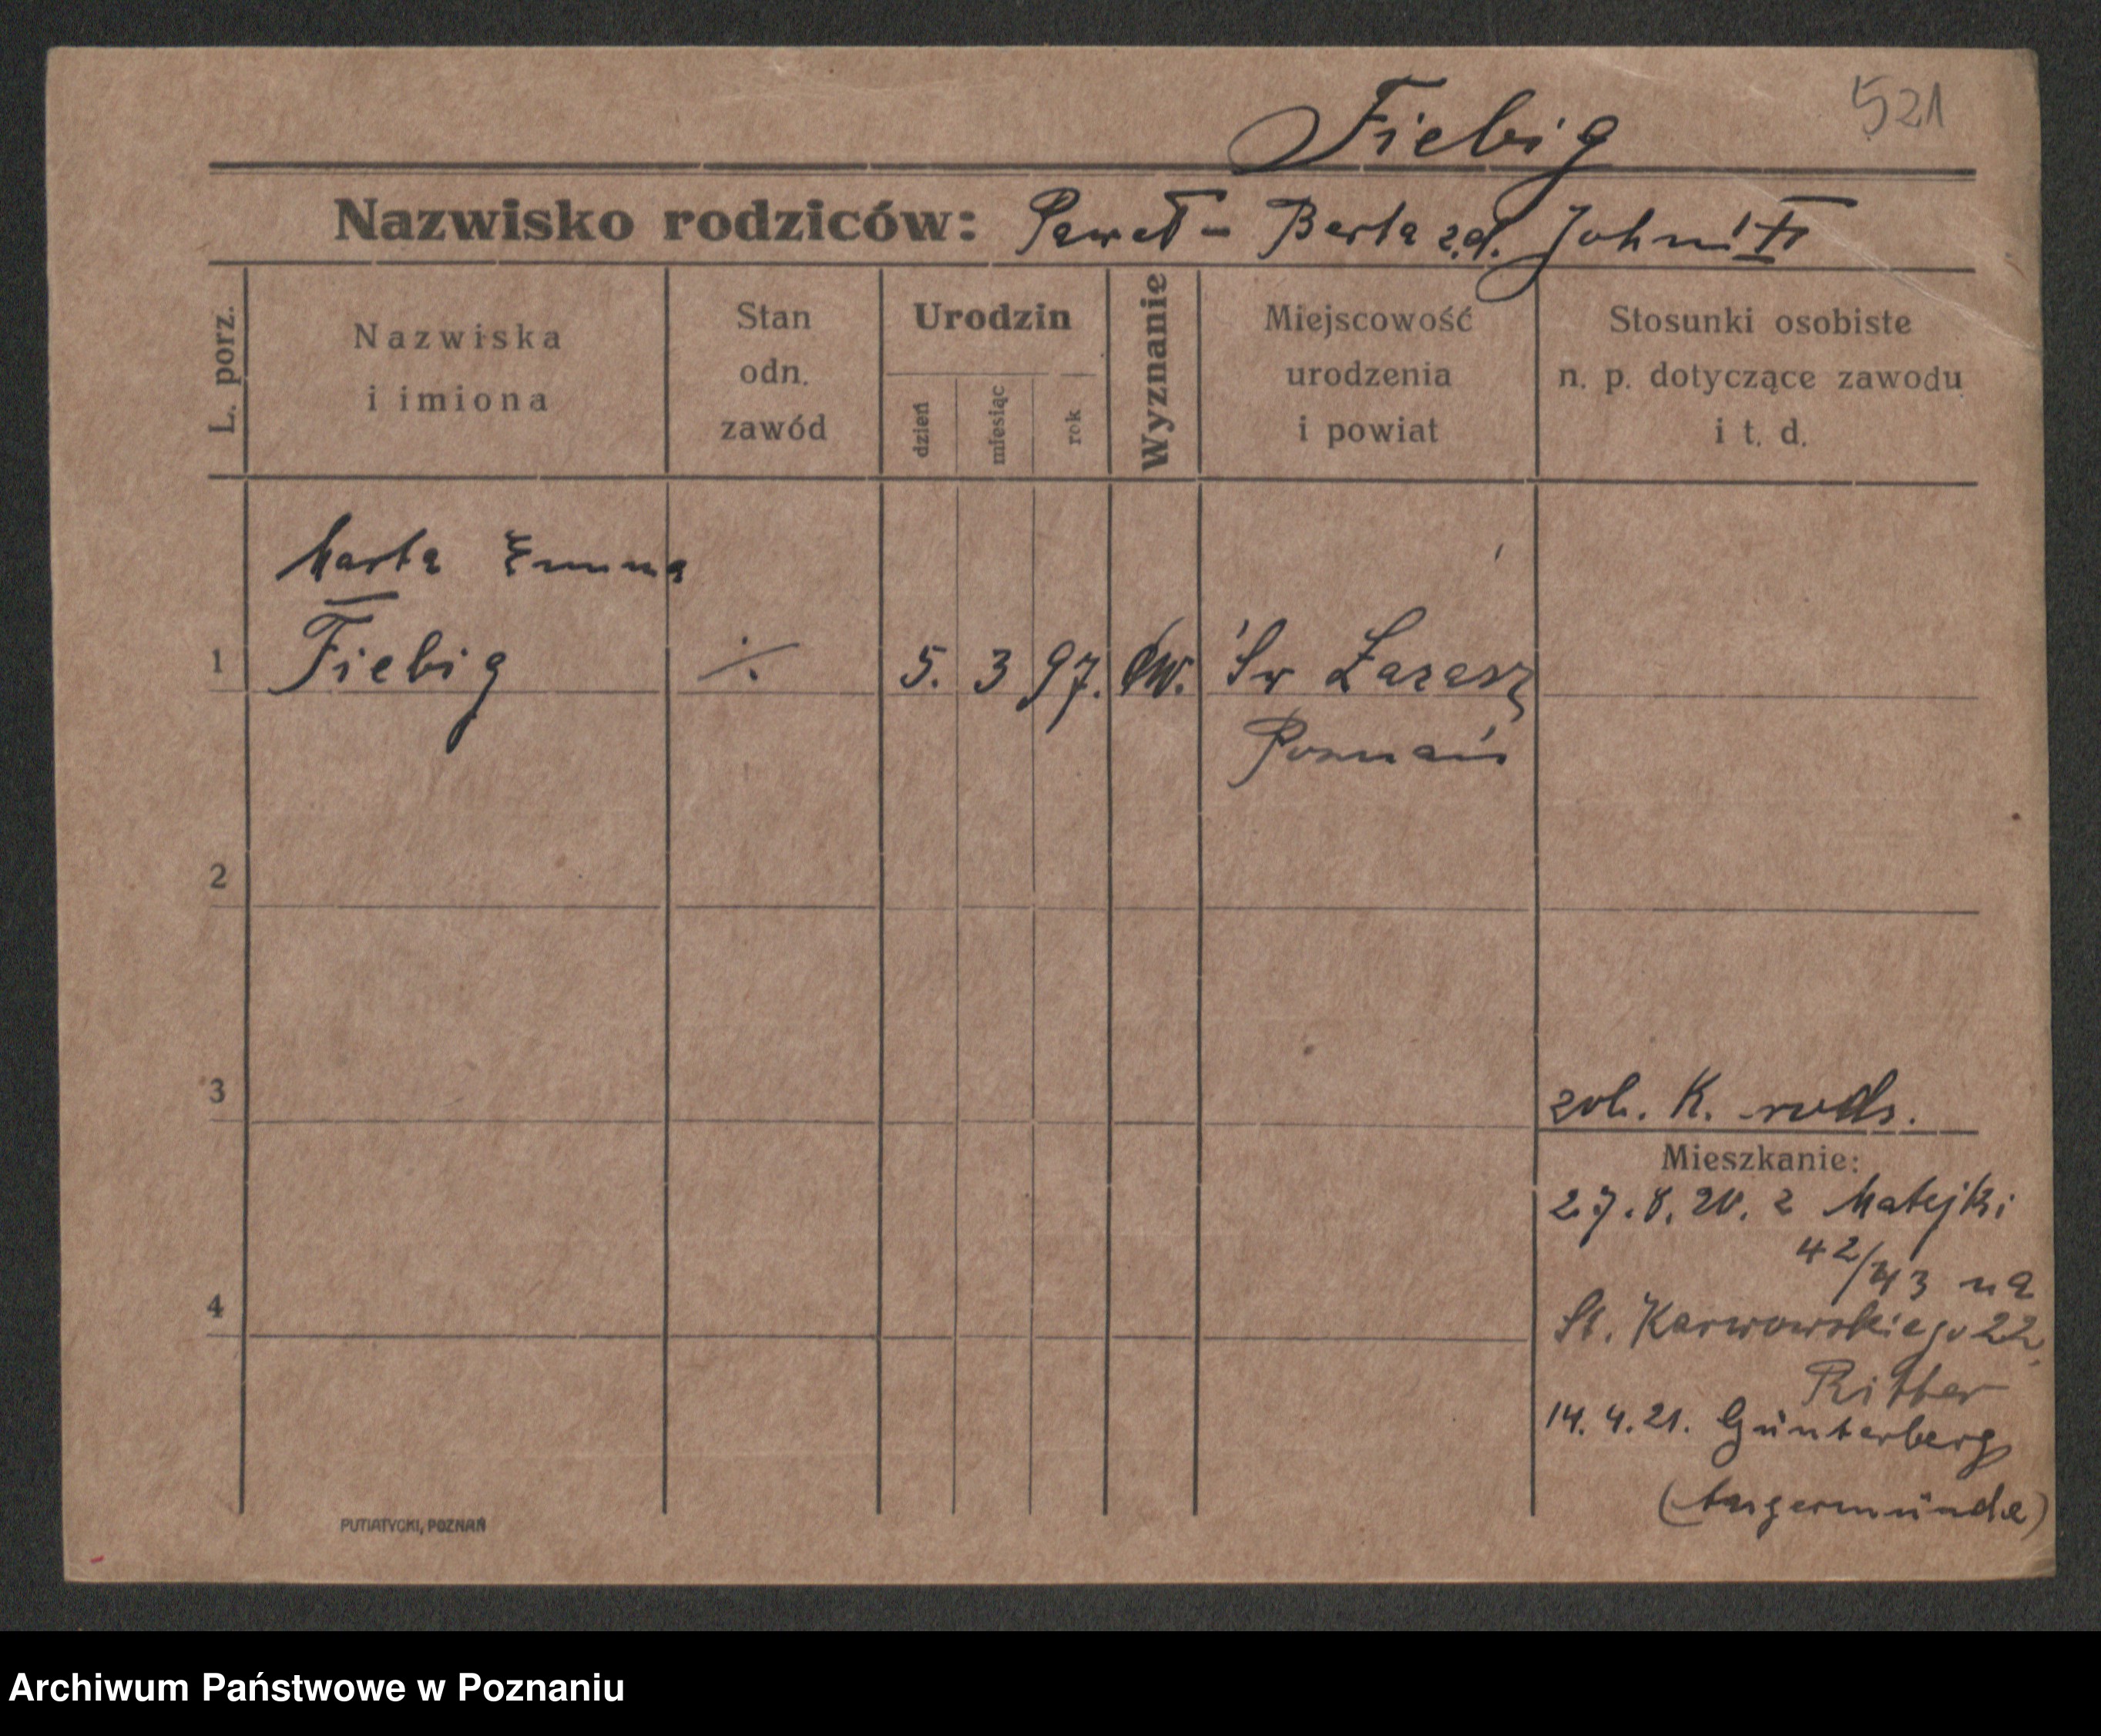 521
Fiebig
Nazwisko rodziców: Paweł - Berta z.d. John
L. porz.
Nazwiska
i imiona
Stan
odn.
zawód
Urodzin
dzień
miesiąc
rok
Wyznanie
Miejscowość
urodzenia
i powiat
Stosunki osobiste
n. p. dotyczące zawodu
i t. d.
Marta Emma
1 Fiebig ·/. 5. 3 97. ew. Św Łazarz
Poznań
2
3
zob. K. rodz.
Mieszkanie:
27.8.20. z Matejki
42/43 na
4
St. Karwowskiego 22,
Ritter
14.4.21. Günterberg
(Angermünde)
PUTIATYCKI, POZNAŃ
Archiwum Państwowe w Poznaniu